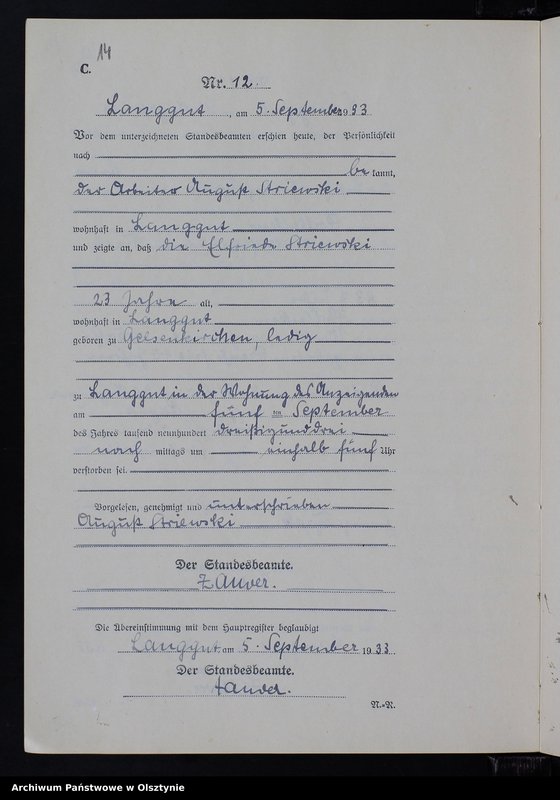 14
C.
Nr. 12.
Langgut, am 5. September 1933
Vor dem unterzeichneten Standesbeamten erschien heute, der Persönlichkeit
nach
be kannt,
der Arbeiter August Striewski
wohnhaft in Langgut
und zeigte an, daß die Elfriede Striewski
23 Jahre alt,
wohnhaft in Langgut
geboren zu Gelsenkirchen, ledig
zu Langgut in der Wohnung des Anzeigenden
am fünf ten September
des Jahres tausend neunhundert dreißigunddrei
nach mittags um einhalb fünf Uhr
verstorben sei.
Vorgelesen, genehmigt und unterschrieben
August Striewski
Der Standesbeamte.
Die Übereinstimmung mit dem Hauptregister beglaubigt
Langgut am 5. September 1933
Der Standesbeamte.
N.-R.
Archiwum Państwowe w Olsztynie